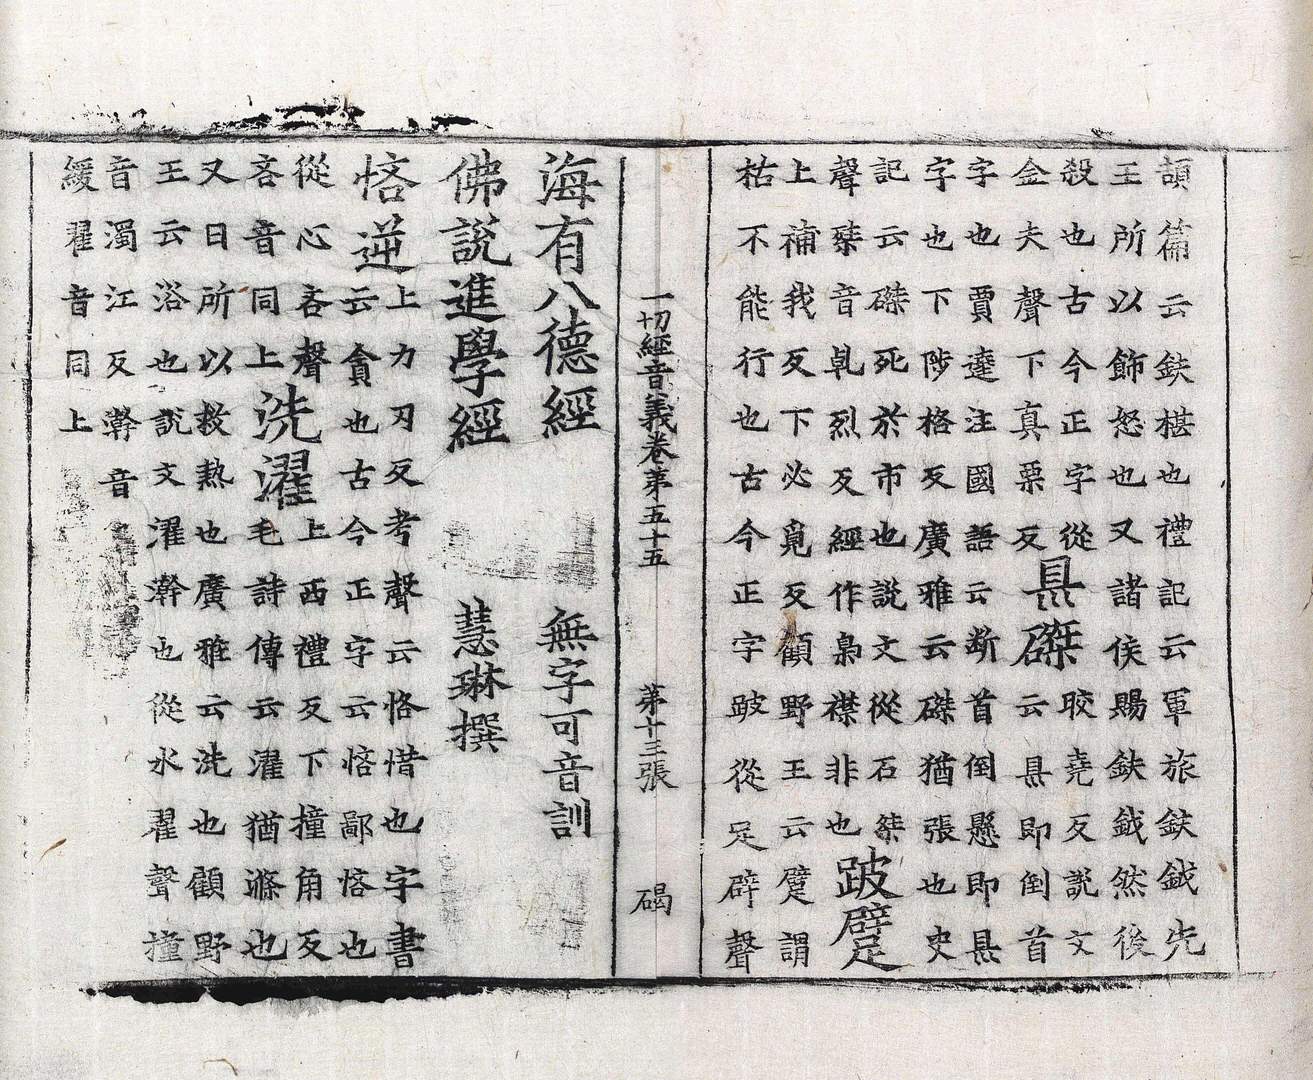 頡篇云鈇椹也禮記云軍旅鈇鉞先
王所以飾怒也又諸侯賜鈇鉞然後
殺也古今正字從
金夫聲下真栗反
県磔
皎堯反說文
云県即倒首
字也賈逵注國語云断首倒懸即県
字也下陟格反廣雅云磔猶張也史
記云磔死於市也說文從石桀
聲桀音乹烈反經作梟襟非也
跛躄
上補我反下必覓反顧野王云躄謂
枯不能行也古今正字跛從足辟聲
一切經音義卷第五十五 第十三張 碣
海有八德經 無字可音訓
佛說進學經 慧琳撰
悋逆
上力刃反考聲云悋惜也字書
云貪也古今正字云悋鄙悋也
從心吝聲
吝音同上
洗濯
上西禮反下撞角反
毛詩傳云濯猶滌也
又曰所以救熱也廣雅云洗也顧野
王云浴也說文濯澣也從水翟聲撞
音濁江反澣音
緩翟音同上